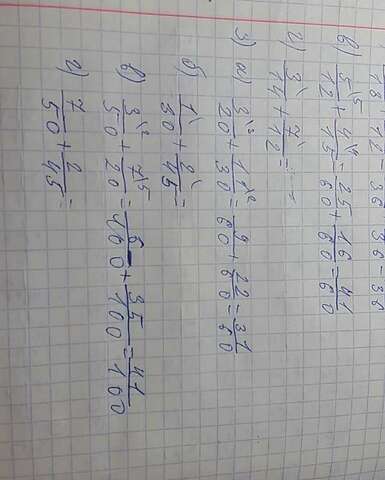 в) 5\5/12 + 4\4/15 = 25/60 + 16/60 = 41/60
г) 3\/14 + 7\/12 =
3) а) 3\3/20 + 11\2/30 = 9/60 + 22/60 = 31/60
б) 1\/30 + 2\/45 =
в) 3\2/50 + 7\5/20 = 6/100 + 35/100 = 41/100
г) 7/50 + 2/45 =